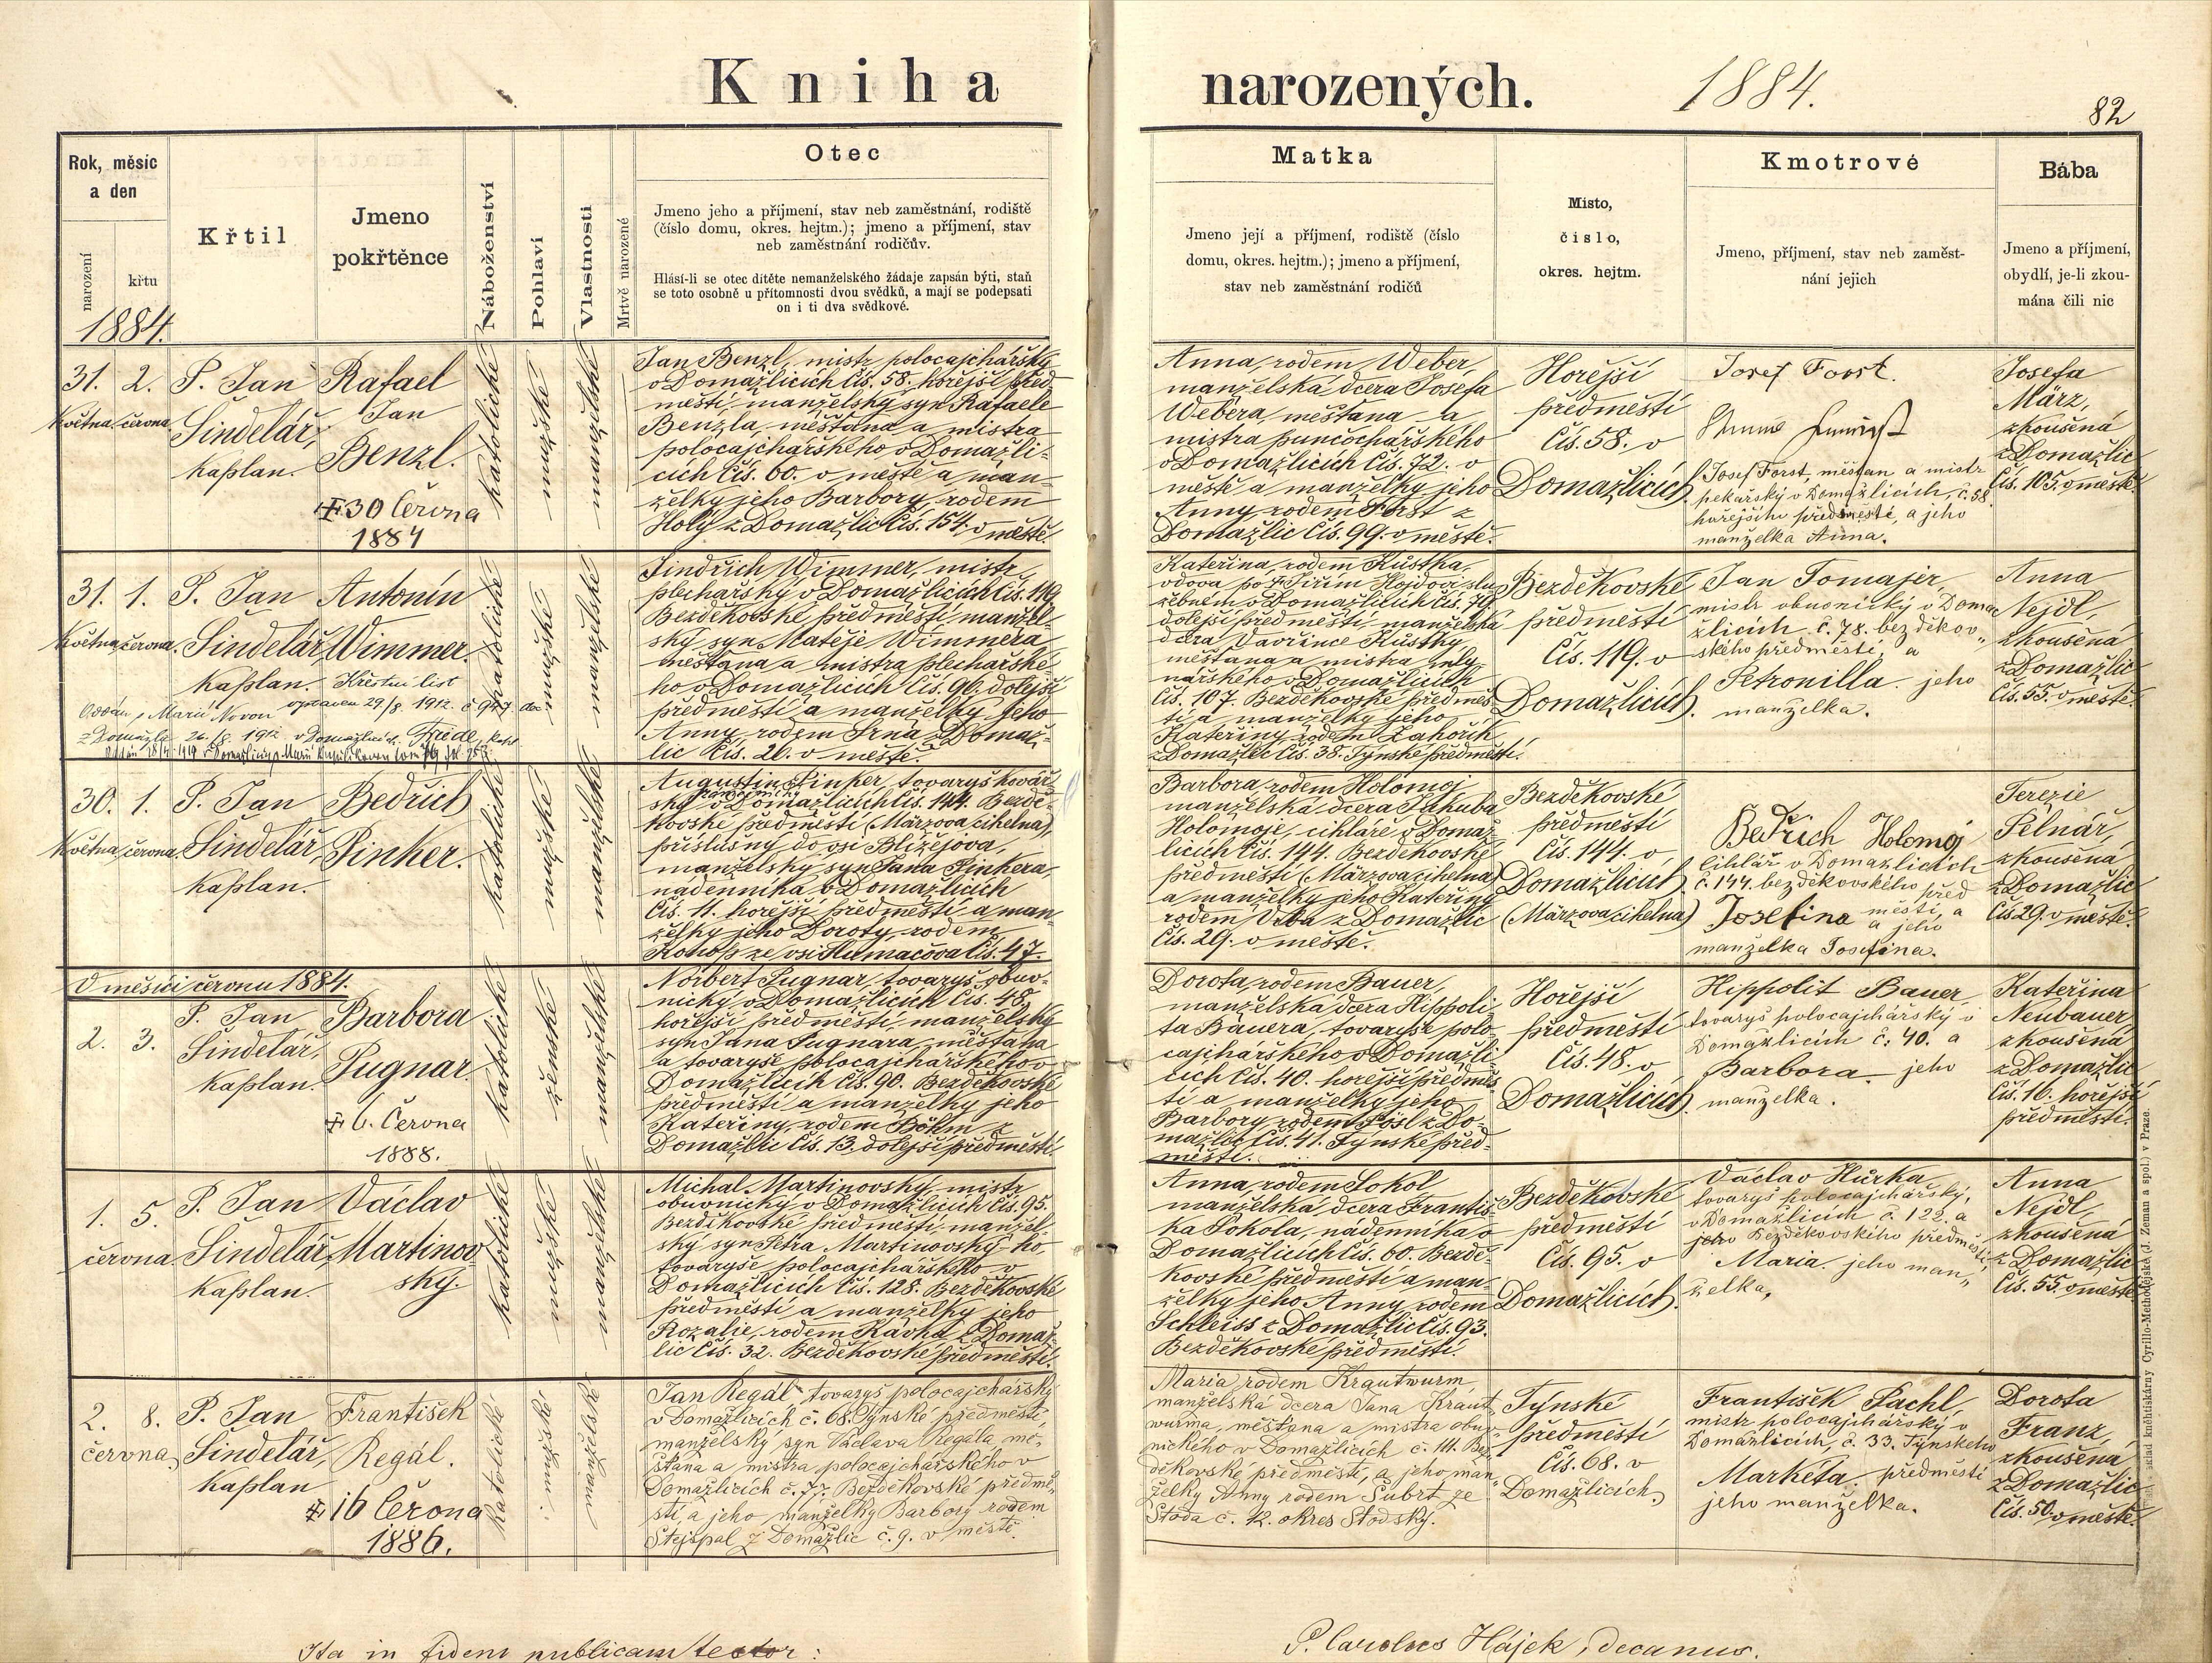 Kniha narozených. 1884.
82
Rok, měsíc
a den
narození
křtu
1884.
Křtil
Jmeno
pokřtěnce
Náboženství
Pohlaví
Vlastnosti
Mrtvě narozené
Otec
Jmeno jeho a příjmení, stav neb zaměstnání, rodiště
(číslo domu, okres. hejtm.); jmeno a příjmení, stav
neb zaměstnání rodičův.
Hlásí-li se otec dítěte nemanželského žádaje zapsán býti, staň
se toto osobně u přítomnosti dvou svědků, a mají se podepsati
on i ti dva svědkové.
Matka
Jmeno její a příjmení, rodiště (číslo
domu, okres. hejtm.); jmeno a příjmení,
stav neb zaměstnání rodičů
Místo,
číslo,
okres. hejtm.
Kmotrové
Jmeno, příjmení, stav neb zaměst-
nání jejich
Bába
Jmeno a příjmení,
obydlí, je-li zkou-
mána čili nic
31. 2.
Května června
P. Jan
Šindelář,
kaplan.
Rafael
Jan
Benzl.
30 června
1884
katolické
mužské
manželské
Jan Benzl, mistr polocajchářský
v Domažlicích čís. 58. hořejší před-
městí, manželský syn Rafaele
Benzla, měšťana a mistra
polocajchářského v Domažli-
cích čís. 60. v městě a man-
želky jeho Barbory, rodem
Holý z Domažlic čís. 154. v městě
Anna, rodem Weber,
manželská dcera Josefa
Webera, měšťana a
mistra punčochářského
v Domažlicích čís. 72. v
městě a manželky jeho
Anny rodem Forst z
Domažlic čís. 99. v městě.
Hořejší
předměstí
čís. 58. v
Domažlicích.
Josef Forst.
Josef Forst, měšťan a mistr
pekařský v Domažlicích, č. 58
hořejšího předměstí, a jeho
manželka Anna.
Josefa
März,
zkoušená
z Domažlic
čís. 105. v městě.
31. 1.
Května června.
P. Jan
Šindelář,
kaplan.
Antonín
Wimmer.
Křestní list
vypraven 29./8. 1912. č 947
z Domažlic 26./8. 1912 v Domažlicích.
katolické
mužské
manželské
Jindřich Wimmer, mistr
plechařský v Domažlicích čís. 119
Bezděkovské předměstí, manžel-
ský syn Matěje Wimmera
měšťana a mistra plechařské-
ho v Domažlicích čís. 96. dolejší
předměstí a manželky jeho
Anny, rodem Srna z Domaž-
lic čís. 20. v městě.
Kateřina, rodem Růstka,
vdova po † Jiřím Hojdovi slu-
žebném v Domažlicích čís. 70.
dolejší předměstí, manželská
dcera Vavřince Růstky
měšťana a mistra mly-
nářského v Domažlicích
čís. 107. Bezděkovské předměs-
tí a manželky jeho
Kateřiny rodem Zahořík
z Domažlic čís. 38. Týnské předměstí.
Bezděkovské
předměstí
čís. 119. v
Domažlicích.
Jan Tomajer,
mistr obuvnický v Doma-
žlicích č. 78. bezděkov-
ského předměstí, a
Petronilla jeho
manželka.
Anna
Nejdl,
zkoušená
z Domažlic
čís. 55. v městě.
30. 1.
Května června.
P. Jan
Šindelář,
kaplan.
Bedřich
Pinker.
katolické
mužské
manželské
Augustin Pinker, tovaryš kovář-
ský v Domažlicích čís. 144. Bezdě-
kovské předměstí (Märzova cihelna),
příslušný do vsi Blížejova,
manželský syn Jana Pinkera,
nádenníka v Domažlicích
čís. 11. hořejší předměstí a man-
želky jeho Doroty, rodem
Konop ze vsi Hlumačova čís. 47.
Barbora, rodem Holomoj
manželská dcera Jakuba
Holomoje, cihláře v Domaž-
licích čís. 144. Bezděkovské
předměstí (Märzova cihelna)
a manželky jeho Kateřiny
rodem Vrba z Domažlic
čís. 29. v městě.
Bezděkovské
předměstí
čís. 144. v
Domažlicích
(Märzova cihelna)
Bedřich Holomoj
cihlář v Domažlicích
č. 144. bezděkovského před
městí, a
Josefina a jeho
manželka Josefina.
Terezie
Pelnář,
zkoušená
z Domažlic
čís 29. v městě.
V měsíci červnu 1884.
2. 3.
P. Jan
Šindelář,
kaplan.
Barbora
Pugnar.
6. června
1888.
katolické
ženské
manželské
Norbert Pugnar, tovaryš obuv-
nický v Domažlicích čís. 48,
hořejší předměstí, manželský
syn Jana Pugnara, měšťana
a tovaryše polocajchářského v
Domažlicích čís. 90. Bezděkovské
předměstí a manželky jeho
Kateřiny, rodem Böhm z
Domažlic čís. 13. dolejší předměstí.
Dorota, rodem Bauer,
manželská dcera Hippoli-
ta Bauera, tovaryše polo-
cajchářského v Domažli-
cích čís. 40. hořejší předměs-
tí a manželky jeho
Barbory rodem Fösl z Do-
mažlic čís. 41. Týnské před-
městí.
Hořejší
předměstí
čís. 48. v
Domažlicích.
Hippolit Bauer,
tovaryš polocajchářský v
Domažlicích č. 40. a
Barbora jeho
manželka.
Kateřina
Neubauer,
zkoušená
z Domažlic
čís. 16. hořejší
předměstí.
1. 5.
června
P. Jan
Šindelář,
kaplan.
Václav
Martinov
ský.
katolické
mužské
manželské
Michal Martinovský, mistr
obuvnický v Domažlicích čís. 95.
Bezděkovské předměstí, manžel-
ský syn Petra Martinovský-ho
tovaryše polocajchářského v
Domažlicích čís. 128. Bezděkovské
předměstí a manželky jeho
Rozalie, rodem Kávka z Domaž-
lic čís. 32. Bezděkovské předměstí.
Anna, rodem Sokol
manželská dcera Františ-
ka Sokola, nádenníka v
Domažlicích čís. 60. Bezdě-
kovské předměstí a man-
želky jeho Anny, rodem
Schleiss z Domažlic čís. 93.
Bezděkovské předměstí.
Bezděkovské
předměstí
čís. 95. v
Domažlicích.
Václav Hůrka,
tovaryš polocajchářský,
v Domažlicích č. 122. a
jeho Bezděkovského předměstí,
Maria jeho man-
želka,
Anna
Nejdl,
zkoušená
z Domažlic
čís. 55. v městě
2. 8.
června,
P. Jan
Šindelář,
kaplan
František
Regál.
16 června
1886.
katolické
mužské
manželské
Jan Regál tovaryš polocajchářský
v Domažlicích č. 68. Týnské předměstí,
manželský syn Václava Regála mě-
šťana a mistra polocajchářského v
Domažlicích č. 77. Bezděkovské předmě-
stí, a jeho manželky Barbory rodem
Stejspal z Domažlic č. 9. v městě.
Maria, rodem Krautwurm
manželská dcera Jana Kraut
wurma, měšťana a mistra obuv-
nického v Domažlicích č. 111. Bez-
děkovské předměstí, a jeho man-
želky Anny rodem Šubrt ze
Stoda č. 12. okres Stodský.
Týnské
předměstí
čís. 68. v
Domažlicích,
František Pachl,
mistr polocajchářský v
Domažlicích, č. 33. Týnského
předměstí
Markéta
jeho manželka.
Dorota
Franz,
zkoušená
z Domažlic
čís. 50. v městě.
Ita in fidem publicam testor:
P. Carolus Hájek, decanus.